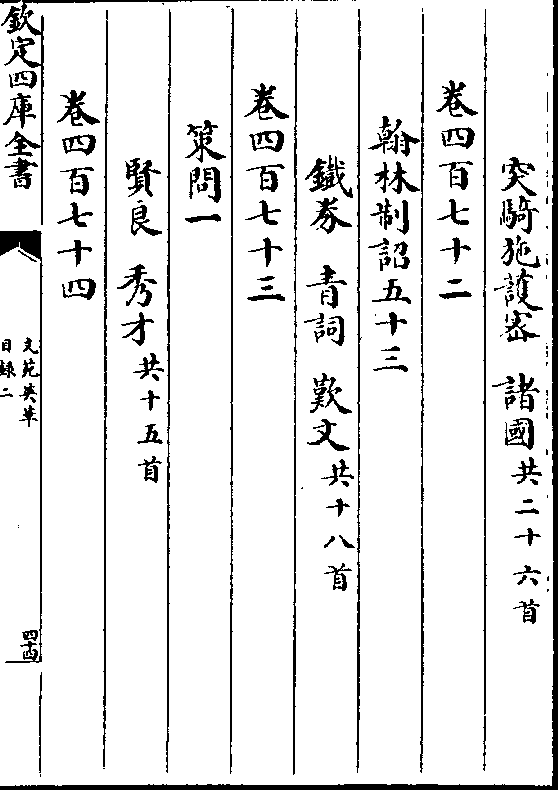 突騎施護宻 諸國共二十六首
卷四百七十二
翰林制詔五十三
鐵券 青詞 歎文共十八首
卷四百七十三
策問一
賢良 秀才共十五首
卷四百七十四
欽定四庫全書
文苑英華
目録二
四十四